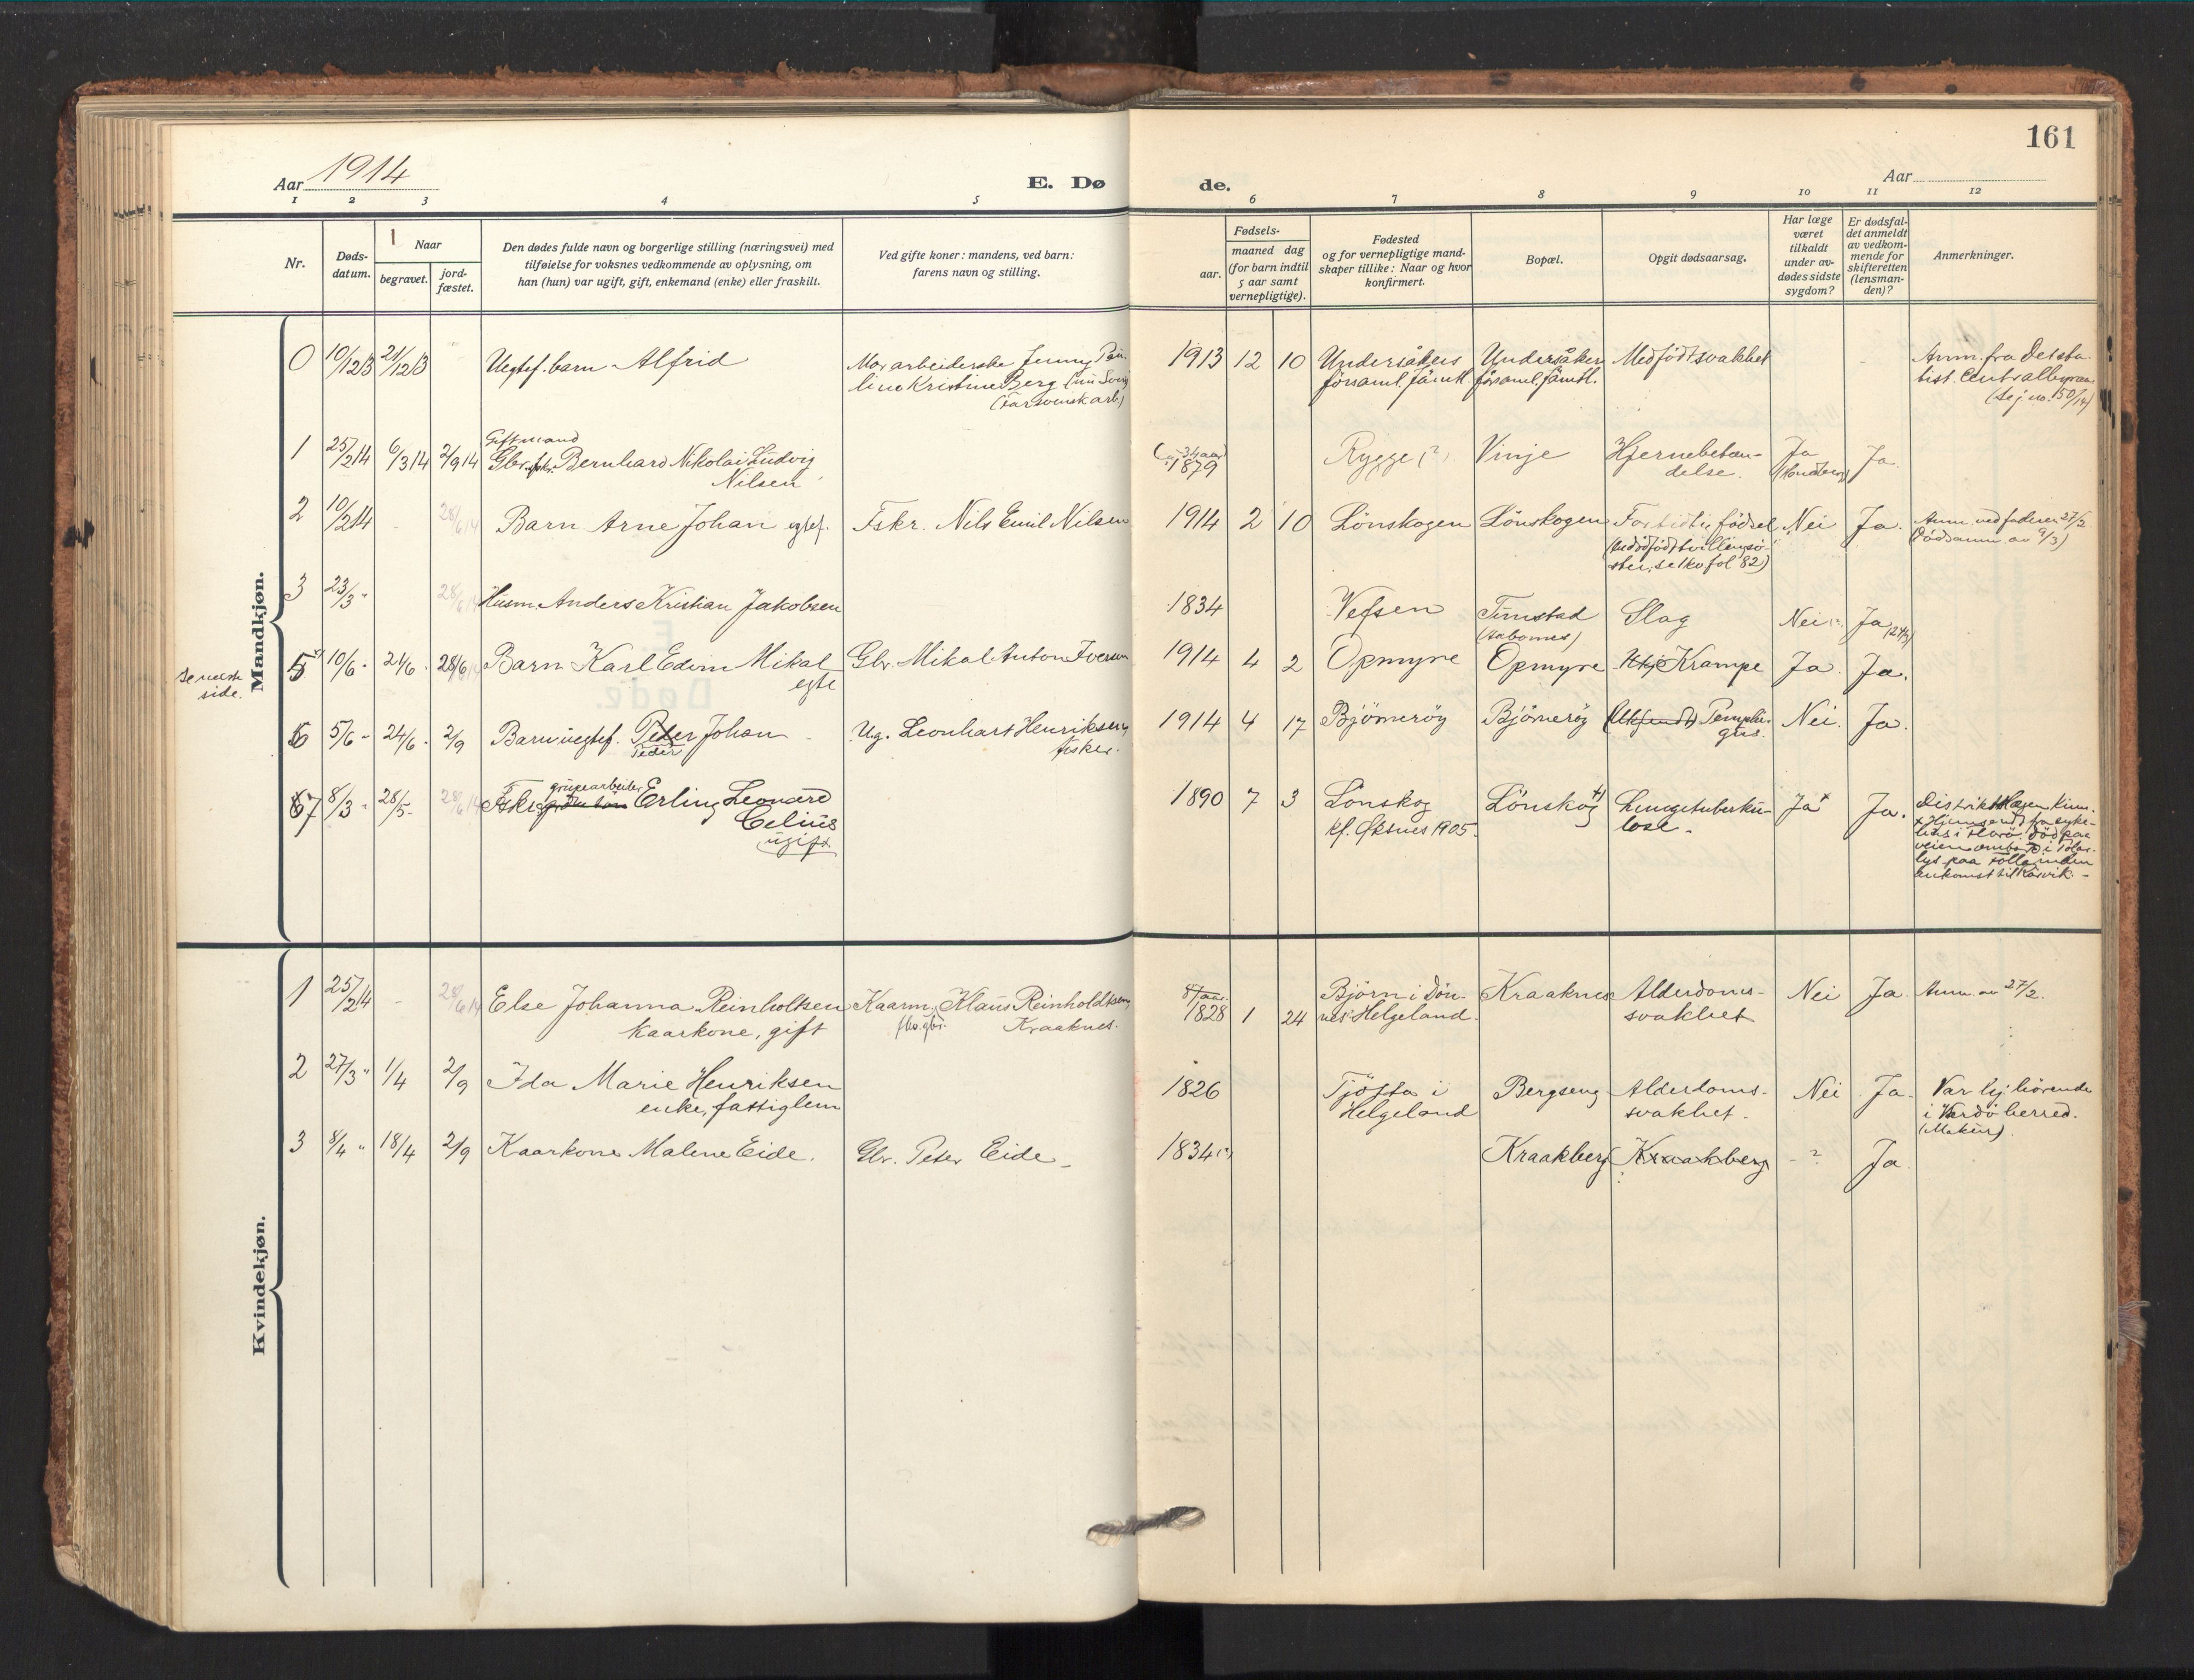 161
Aar 1914
E. Dø de.
Aar
1 2 3 4 5 6 7 8 9 10 11 12
Nr.
Døds-
datum.
Naar
begravet.
jord-
fæstet.
Den dødes fulde navn og borgerlige stilling (næringsvei) med
tilføielse for voksnes vedkommende av oplysning, om
han (hun) var ugift, gift, enkemand (enke) eller fraskilt.
Ved gifte koner: mandens, ved barn:
farens navn og stilling.
Fødsels-
aar.
maaned dag
(for barn indtil
5 aar samt
vernepligtige).
Fødested
og for vernepligtige mand-
skaper tillike: Naar og hvor
konfirmert.
Bopæl.
Opgit dødsaarsag.
Har læge
været
tilkaldt
under av-
dødes sidste
sygdom?
Er dødsfal-
det anmeldt
av vedkom-
mende for
skifteretten
(lensman-
den)?
Anmerkninger.
Mandkjøn.
0 10/12 13 21/12 13 Uegtef. barn Alfrid Mor arbeiderske Jenny Pau- 1913 12 10 Undersåkers Undersåker Medfödt svakhet Anm. fra Det sta-
line Kristine Berg församl. Jämtl. församl. Jämtl. tist. Centralbyraa
(Far svensk arb) (se j. no. 150/14)
Gift mand
1 25/2 14 6/3 14 2/9 14 Gbr. fskr. Bernhard Nikolai Ludvig 34 aar Rygge (?) Vinje Hjernebetæn- Ja Ja.
Nilsen 1879 delse.
2 10/2 14 - 28/6 14 Barn Arne Johan egtef. Fskr. Nils Emil Nilsen 1914 2 10 Lönskogen Lönskogen For tidlig födsel Nei Ja. Anm. ved faderen 27/2
ster, se kbo fol 82) (Dödsanm. av 9/3)
3 23/3 " 28/6 14 Husm. Anders Kristian Jakobsen 1834 Vefsen Timstad Slag Nei Ja
se næste
side.
5 10/6 - 24/6 - 28/6 14 Barn Karl Edvin Mikal Gbr. Mikal Anton Iversen 1914 4 2 Opmyre Opmyre Krampe Ja. Ja.
egte
6 5/6 - 24/6 - 2/9 Barn uegtef. Peter Johan Ug. Leonhart Henriksen 1914 4 17 Bjömeröy Bjömeröy Pemphi- Nei. Ja.
Peder fisker. gus.
grupearbeider
7 8/3 - 28/5 - 28/6 14 Fskr. Erling Leonard 1890 7 3 Lönskog Lönskog +) Lungetuberku- Ja Ja. Distriktslægen
Celius kf. Øksnes 1905. lose. + Hjemsendt fra syke-
ugift hus i död paa
veien ombord i Polar-
lys paa Folla inden
ankomst til
Kvindekjøn.
1 25/2 14 - 28/6 14 Else Johanna Reinholtsen Kaarm. Klaus Reinholdtsen, 1828 1 24 Björn i Dön- Kraaknes Alderdoms- Nei Ja. Anm. av 27/2.
kaarkone, gift Kraaknes. nes Helgeland. svakhet
2 27/3 " 1/4 2/9 Ida Marie Henriksen 1826 Tjötta i Bergseng Alderdoms- Nei Ja. Var hj. hörende
enke, fattiglem Helgeland svakhet. i Værdö herred.
3 8/4 " 18/4 2/9 Kaarkone Malene Eide. Gbr. Peter Eide - 1834 (?) Kraakberg Kraakberg - ? Ja